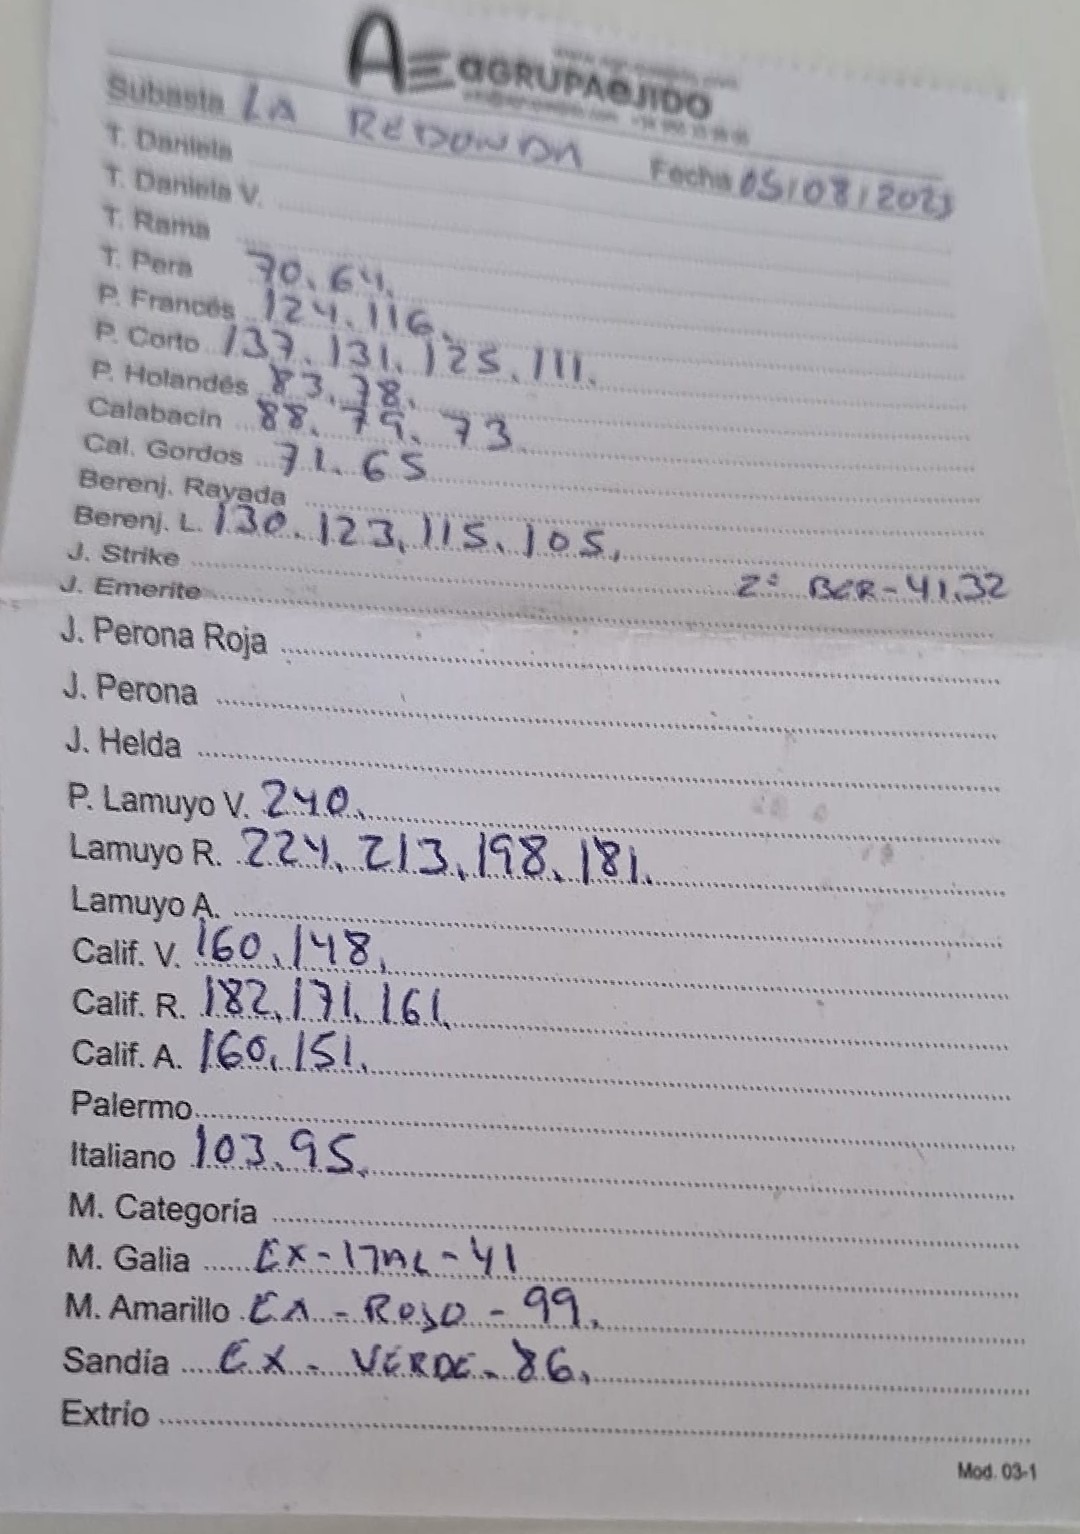 AE aGRUPAEJIDO
Subasta LA REDONDA Fecha 05/08/2023
T. Daniela
T. Daniela V.
T. Rama
T. Pera 70. 64.
P. Francés 124. 116.
P. Corto 137. 131. 125. 111.
P. Holandés 83. 78.
Calabacín 88. 79. 73
Cal. Gordos 71. 65
Berenj. Rayada
Berenj. L. 130. 123, 115. 105,
J. Strike
J. Emerite 2ª BER-41.32
J. Perona Roja
J. Perona
J. Helda
P. Lamuyo V. 240.
Lamuyo R. 224. 213. 198. 181.
Lamuyo A.
Calif. V. 160. 148.
Calif. R. 182. 171. 161.
Calif. A. 160. 151.
Palermo
Italiano 103. 95.
M. Categoría
M. Galia EX-ITAL-41
M. Amarillo EX-ROJO-99.
Sandía EX-VERDE-86.
Extrío
Mod. 03-1